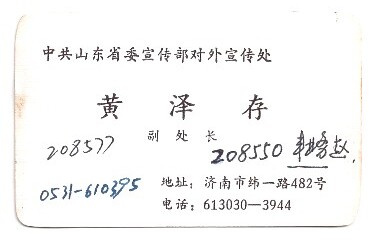 中共山东省委宣传部对外宣传处
黄泽存
副处长
208577
208550
0531-610395
地址：济南市纬一路482号
电话：613030—3944